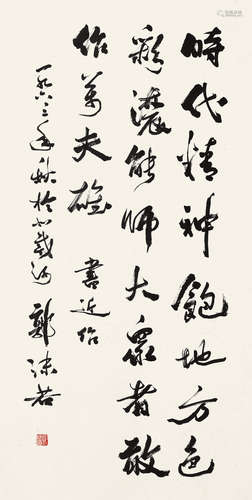 時代精神飽地方色
彩濃能師大眾者敢
作萬夫雄 書近作
一九六二年秋於北戴河 郭沫若